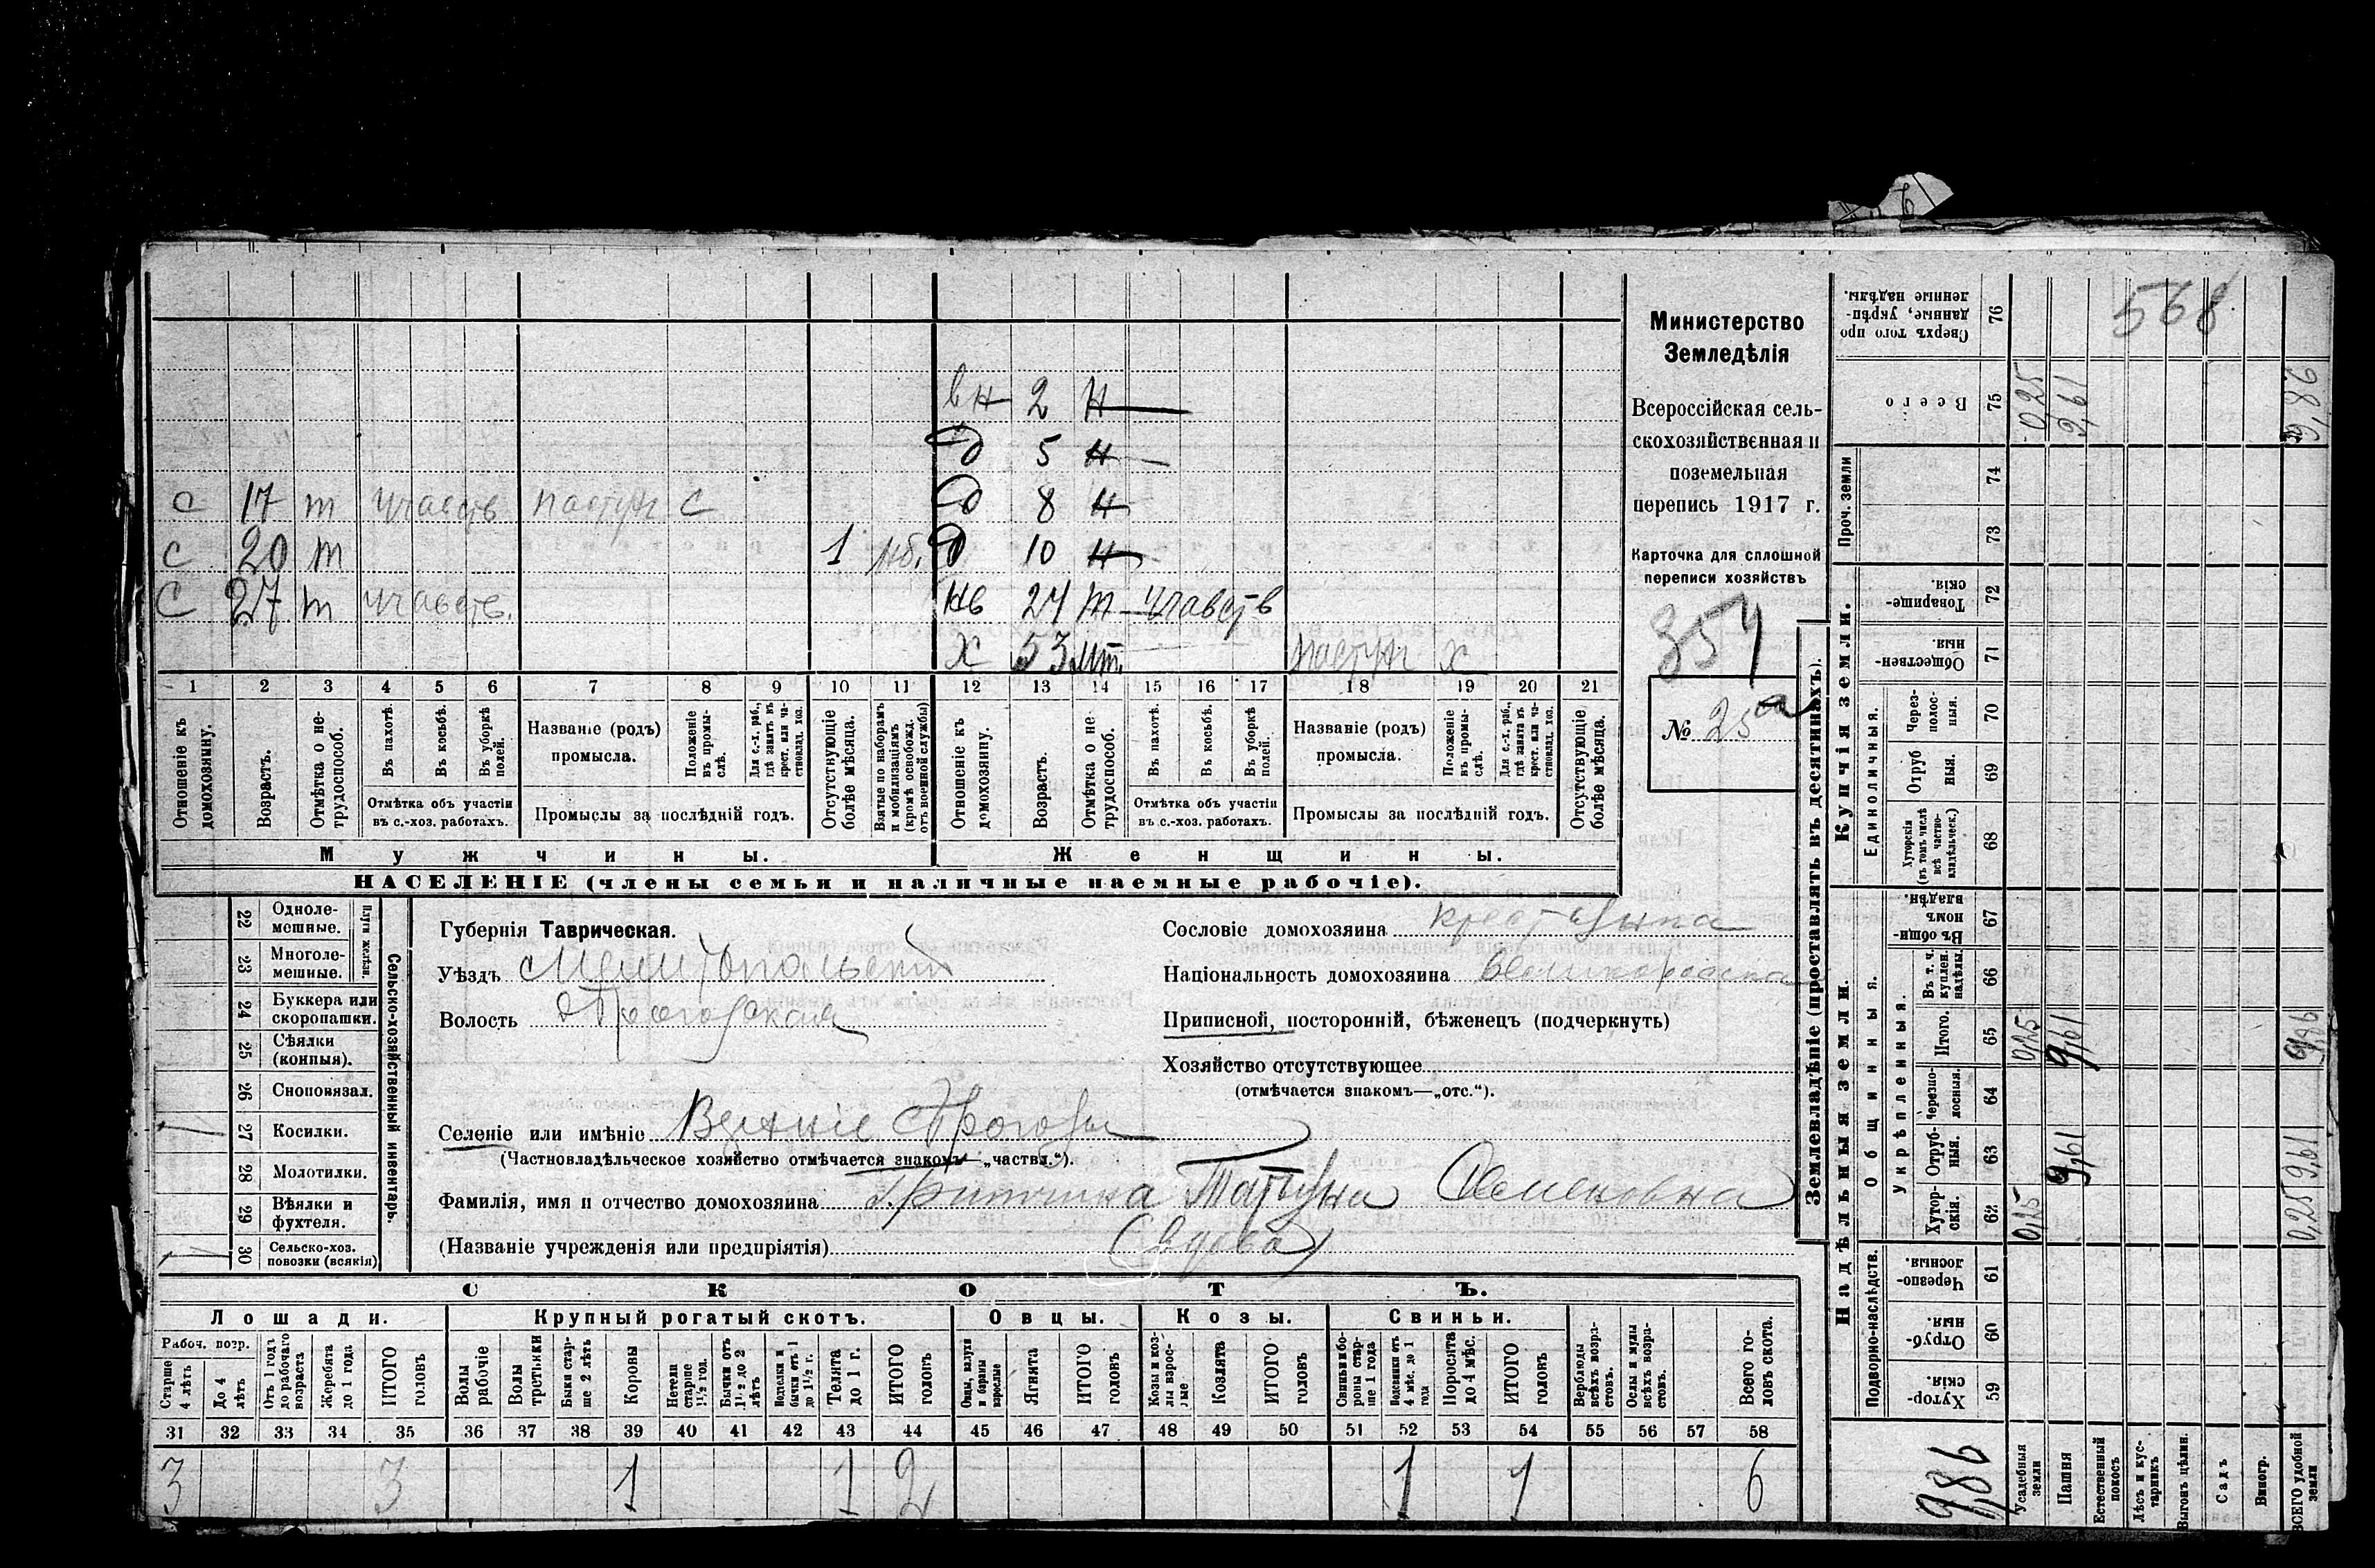 568
вн 2 н
д 5 н
с 17 т участв пастух с д 8 н
с 20 т 1 мб. д 10 н
с 27 т участв. нв 24 т участв
х 53 пт. пастух х
1 2 3 4 5 6 7 8 9 10 11 12 13 14 15 16 17 18 19 20 21
Отношеніе къ домохозяину.
Возрастъ.
Отмѣтка о нетрудоспособ.
Въ пахотѣ.
Въ косьбѣ.
Въ уборкѣ полей.
Отмѣтка объ участіи
въ с.-хоз. работахъ.
Названіе (родъ)
промысла.
Положеніе въ промыслѣ.
Для с.-х. раб., гдѣ занятъ въ крест. или частновлад. хоз.
Промыслы за послѣдній годъ.
Отсутствующіе болѣе мѣсяца.
Взятые по наборамъ и мобилизаціямъ (кромѣ освобожд. отъ военной службы)
Отношеніе къ домохозяину.
Возрастъ.
Отмѣтка о нетрудоспособ.
Въ пахотѣ.
Въ косьбѣ.
Въ уборкѣ полей.
Отмѣтка объ участіи
въ с.-хоз. работахъ.
Названіе (родъ)
промысла.
Положеніе въ промыслѣ.
Для с.-х. раб., гдѣ занятъ въ крест. или частновлад. хоз.
Промыслы за послѣдній годъ.
Отсутствующіе болѣе мѣсяца.
Мужчины. Женщины.
НАСЕЛЕНІЕ (члены семьи и наличные наемные рабочіе).
Министерство
Земледѣлія
Всероссійская сель-
скохозяйственная и
поземельная
перепись 1917 г.
Карточка для сплошной
переписи хозяйствъ
354
№ 25а
22 Однолемешные.
23 Многолемешные.
Плуги желѣзн.
24 Буккера или скоропашки.
25 Сѣялки (конныя).
26 Сноповязал.
27 Косилки. 1
28 Молотилки.
29 Вѣялки и фухтеля.
30 Сельско-хоз. повозки (всякія) 1
Сельско-хозяйственный инвентарь.
Губернія Таврическая.
Уѣздъ Мелитопольскій
Волость
Селеніе или имѣніе Верхніе
(Частновладѣльческое хозяйство отмѣчается знакомъ—„частвл.“).
Фамилія, имя и отчество домохозяина Татьяна Семеновна
(Названіе учрежденія или предпріятія) (вдова)
Сословіе домохозяина крестьянка
Національность домохозяина великоросска
Приписной, посторонній, бѣженецъ (подчеркнуть)
Хозяйство отсутствующее
(отмѣчается знакомъ—„отс.“).
СКОТЪ.
Лошади. Крупный рогатый скотъ. Овцы. Козы. Свиньи.
Рабоч. возр.
Старше 4 лѣтъ
До 4 лѣтъ
Отъ 1 года до рабочаго возраста
Жеребята до 1 года
ИТОГО головъ
Волы рабочіе
Волы третьяки
Быки старше 2 лѣтъ
Коровы
Нетели старше 1½ год.
Бычки отъ 1½ до 2 лѣтъ
бычки отъ 1 до 1½ г.
Телята до 1 г.
ИТОГО головъ
Овцы, валухи и бараны взрослые
Ягнята
ИТОГО головъ
Козы и козлы взрослые
Козлята
ИТОГО головъ
Свиньи и боровы старше 1 года
Подсвинки отъ 4 мѣс. до 1 года
Поросята до 4 мѣс.
ИТОГО головъ
Верблюды всѣхъ возрастовъ.
Ослы и мулы всѣхъ возрастовъ.
Всего головъ скота.
31 32 33 34 35 36 37 38 39 40 41 42 43 44 45 46 47 48 49 50 51 52 53 54 55 56 57 58
3 3 1 1 2 1 1 6
Землевладѣніе (проставлять въ десятинахъ).
Надѣльныя земли. Купчія земли. Проч. земли
Подворно-наслѣдств.
Общинныя.
Укрѣпленныя.
Единоличныя.
Хуторскія 59
Отрубныя. 60
Черезполосныя. 61
Хуторскія. 62
Отрубныя. 63
Черезполосныя. 64
Итого. 65
Въ т. ч. куплен. надѣлы. 66
Въ общинномъ владѣн. 67
Хуторскія (въ томъ числѣ всѣ частновладѣльческ.) 68
Отрубныя. 69
Черезполосныя. 70
Общественныя. 71
Товарищескія. 72
73
74
Всего 75
Сверхъ того проданные, укрѣпленные надѣлы. 76
9,86
Усадебныя земли 0,25 0,25 0,25
Пашня 9,61 9,61 9,61
Естественный покосъ
Лѣсъ и кустарникъ
Выгонъ цѣлин.
Садъ
Виногр.
ВСЕГО удобной земли 0,25 9,61 9,86 9,86